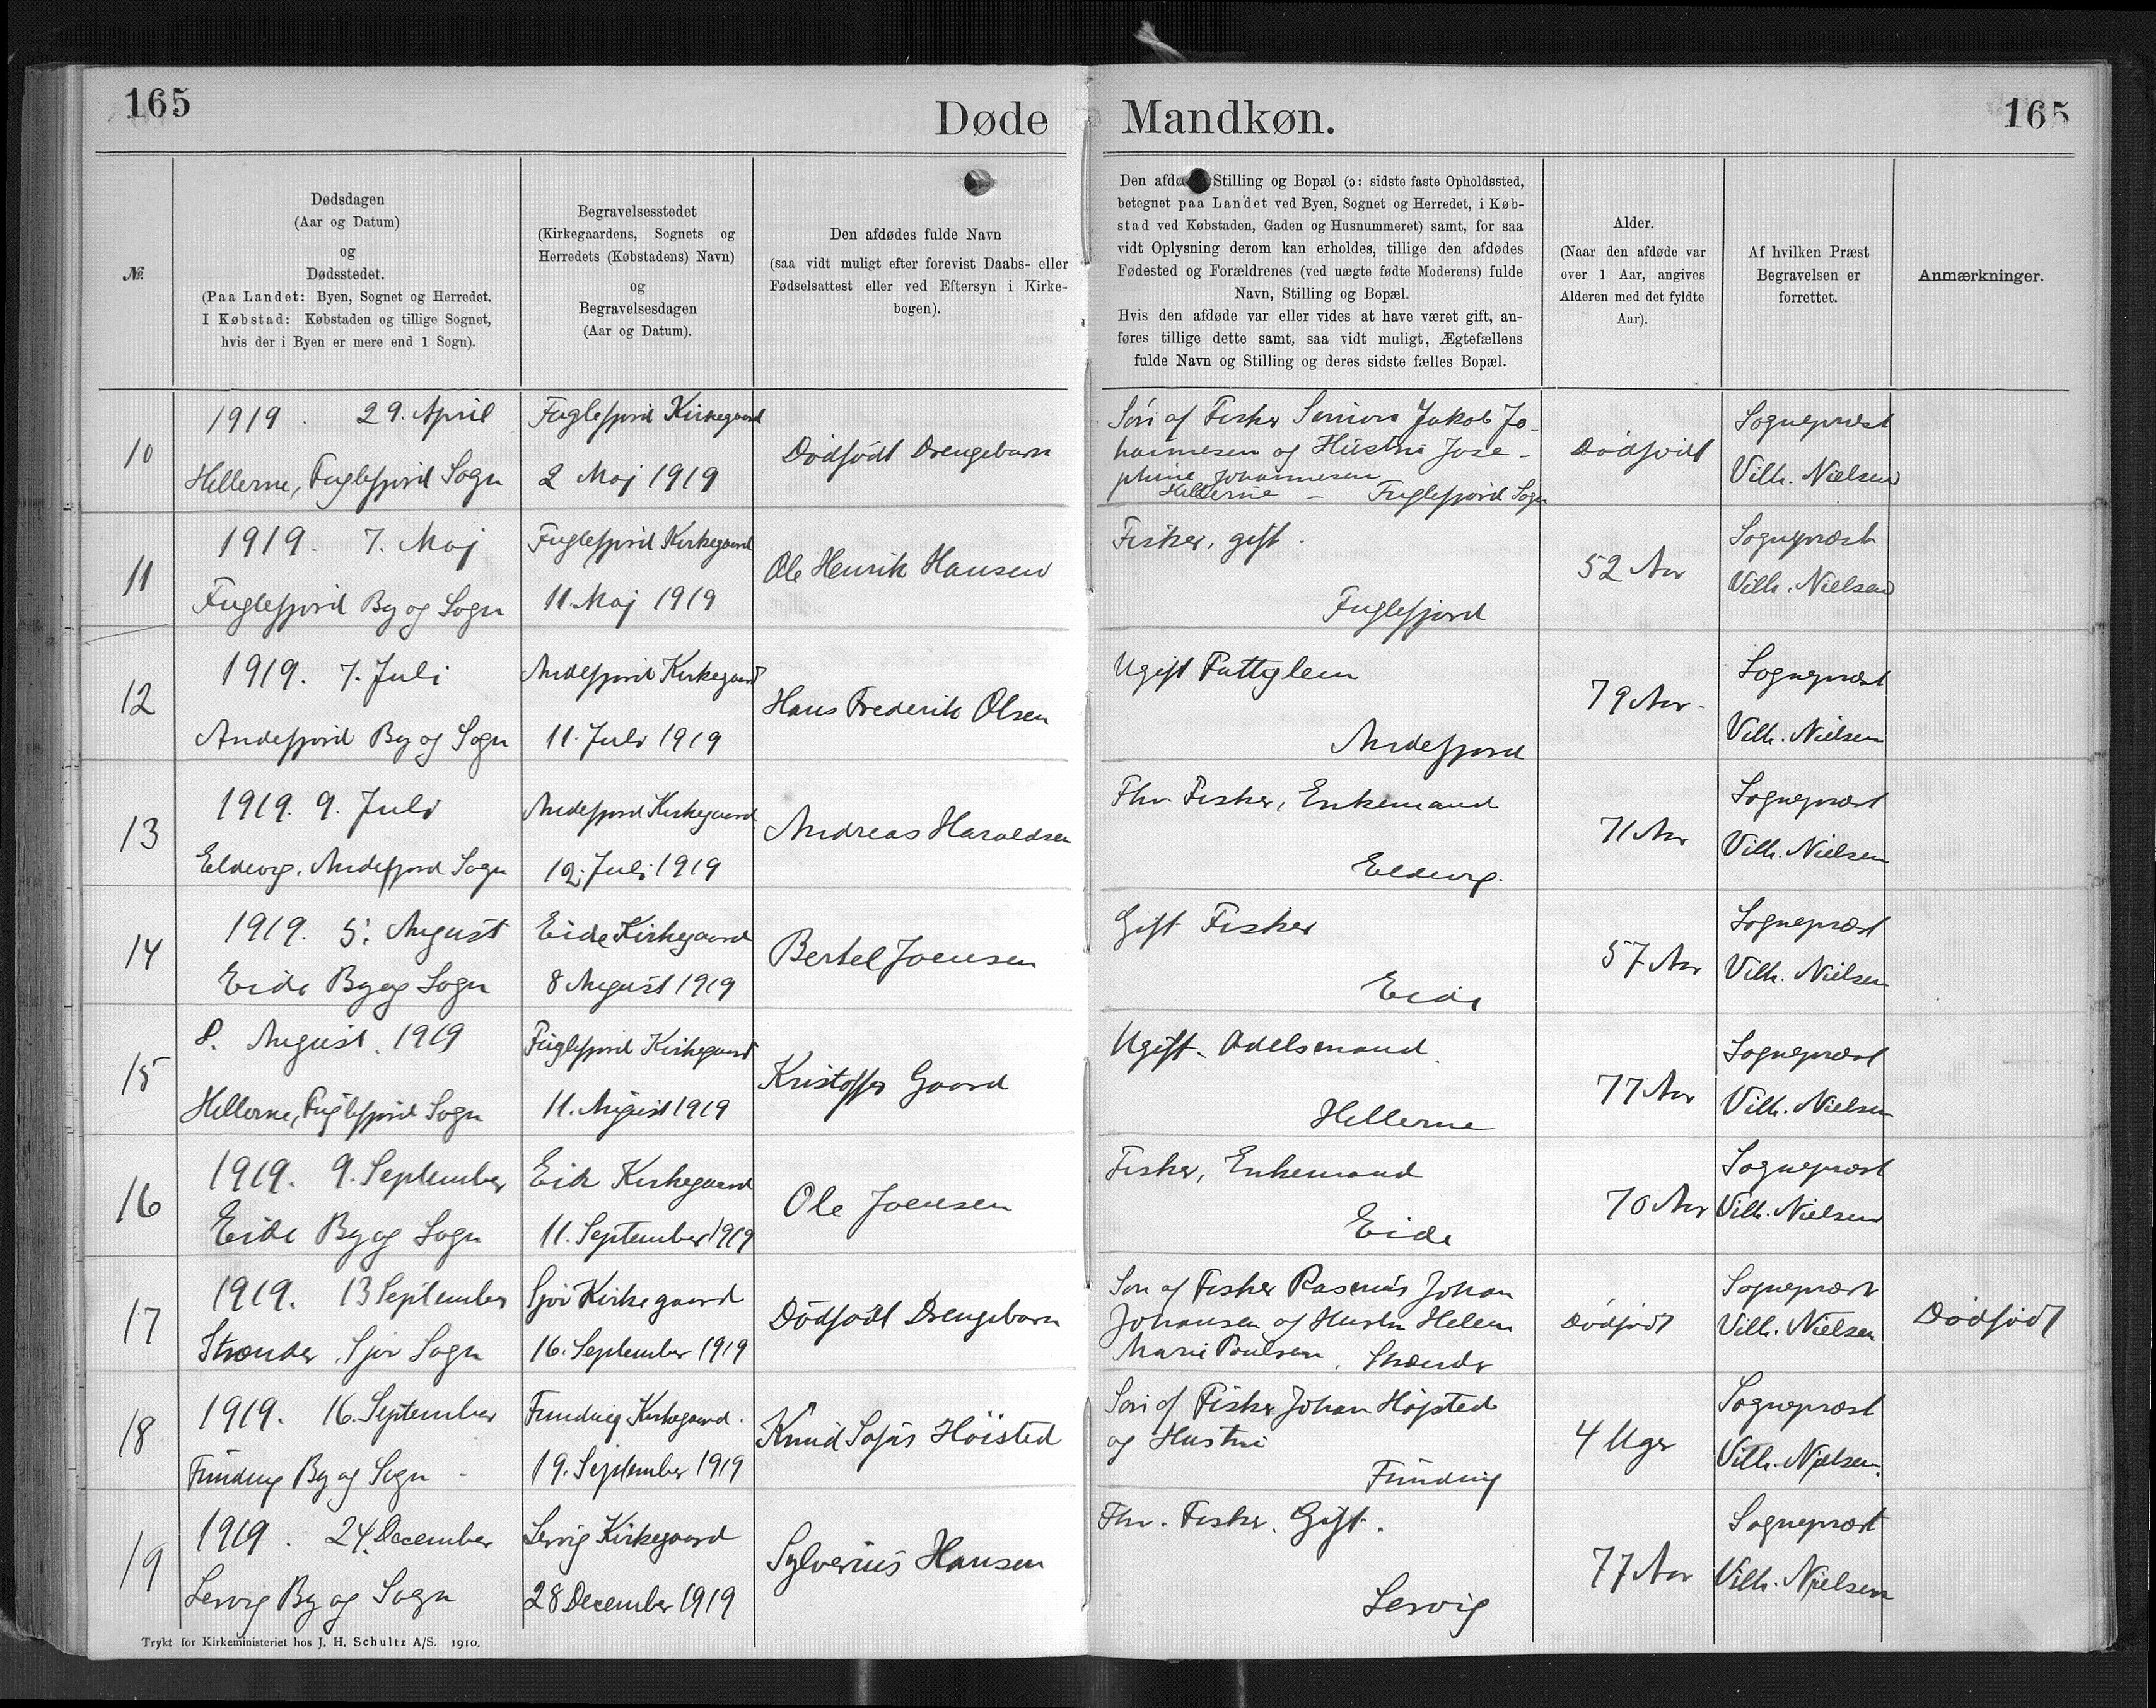 165
Døde Mandkøn.
165
№.
Dødsdagen
(Aar og Datum)
og
Dødsstedet.
(Paa Landet: Byen, Sognet og Herredet.
I Købstad: Købstaden og tillige Sognet,
hvis der i Byen er mere end 1 Sogn).
Begravelsesstedet
(Kirkegaardens, Sognets og
Herredets (Købstadens) Navn)
og
Begravelsesdagen
(Aar og Datum).
Den afdødes fulde Navn
(saa vidt muligt efter forevist Daabs- eller
Fødselsattest eller ved Eftersyn i Kirke-
bogen).
Den Stilling og Bopæl (ɔ: sidste faste Opholdssted,
betegnet paa Landet ved Byen, Sognet og Herredet, i Køb-
stad ved Købstaden, Gaden og Husnummeret) samt, for saa
vidt Oplysning derom kan erholdes, tillige den afdødes
Fødested og Forældrenes (ved uægte fødte Moderens) fulde
Navn, Stilling og Bopæl.
Hvis den afdøde var eller vides at have været gift, an-
føres tillige dette samt, saa vidt muligt, Ægtefællens
fulde Navn og Stilling og deres sidste fælles Bopæl.
Alder.
(Naar den afdøde var
over 1 Aar, angives
Alderen med det fyldte
Aar).
Af hvilken Præst
Begravelsen er
forrettet.
Anmærkninger.
10
1919. 29. April
Hellerne, Fuglefjord Sogn
Fuglefjord Kirkegaard
2 Maj 1919
Dödfödt Drengebarn
Sön af Fisker Jakob Jo-
hannesen og Hustru Jose-
phine Johannesen
Hellerne - Fuglefjord Sogn
Dödfödt
Sognepræst
Vilh. Nielsen
11
1919. 7. Maj
Fuglefjord By og Sogn
Fuglefjord Kirkegaard
11. Maj 1919
Ole Henrik Hansen
Fisker, gift.
Fuglefjord
52 Aar
Sognepræst
Vilh. Nielsen
12
1919. 7. Juli
Andefjord By og Sogn
Andefjord Kirkegaard
11. Juli 1919
Hans Frederik Olsen
Ugift Fattiglem
Andefjord
79 Aar.
Sognepræst
Vilh. Nielsen
13
1919. 9. Juli
Eldevig, Andefjord Sogn
Andefjord Kirkegaard
12. Juli 1919
Andreas Haraldsen
Fhv. Fisker, Enkemand
Eldevig.
71 Aar
Sognepræst
Vilh. Nielsen
14
1919. 5. August
Eide By og Sogn
Eide Kirkegaard
8 August 1919
Bertel Joensen
Gift Fisker
Eide
57 Aar
Sognepræst
Vilh. Nielsen
15
8. August. 1919
Hellerne, Fuglefjord Sogn
Fuglefjord Kirkegaard
11. August 1919
Kristoffer Gaard
Ugift. Odelsmand.
Hellerne
77 Aar
Sognepræst
Vilh. Nielsen
16
1919. 9. September
Eide By og Sogn
Eide Kirkegaard
11. September 1919
Ole Joensen
Fisker, Enkemand
Eide
70 Aar
Sognepræst
Vilh. Nielsen
17
1919. 13 September
Strænder, Sjov Sogn
Sjov Kirkegaard
16. September 1919
Dödfödt Drengebarn
Sön af Fisker Rasmus Johan
Johansen og Hustru Helene
Marie Poulsen, Strænder
Dödfödt
Sognepræst
Vilh. Nielsen
Dödfödt
18
1919. 16. September
Funding By og Sogn -
Funding Kirkegaard.
19. September 1919
Knud Sofus Höisted
Sön af Fisker Johan Höjsted
og Hustru
Funding
4 Uger
Sognepræst
Vilh. Nielsen.
19
1919. 24. December
Lervig By og Sogn
Lervig Kirkegaard
28 December 1919
Sylverius Hansen
Fhv. Fisker. Gift.
Lervig
77 Aar
Sognepræst
Vilh. Nielsen
Trykt for Kirkeministeriet hos J. H. Schultz A/S. 1910.